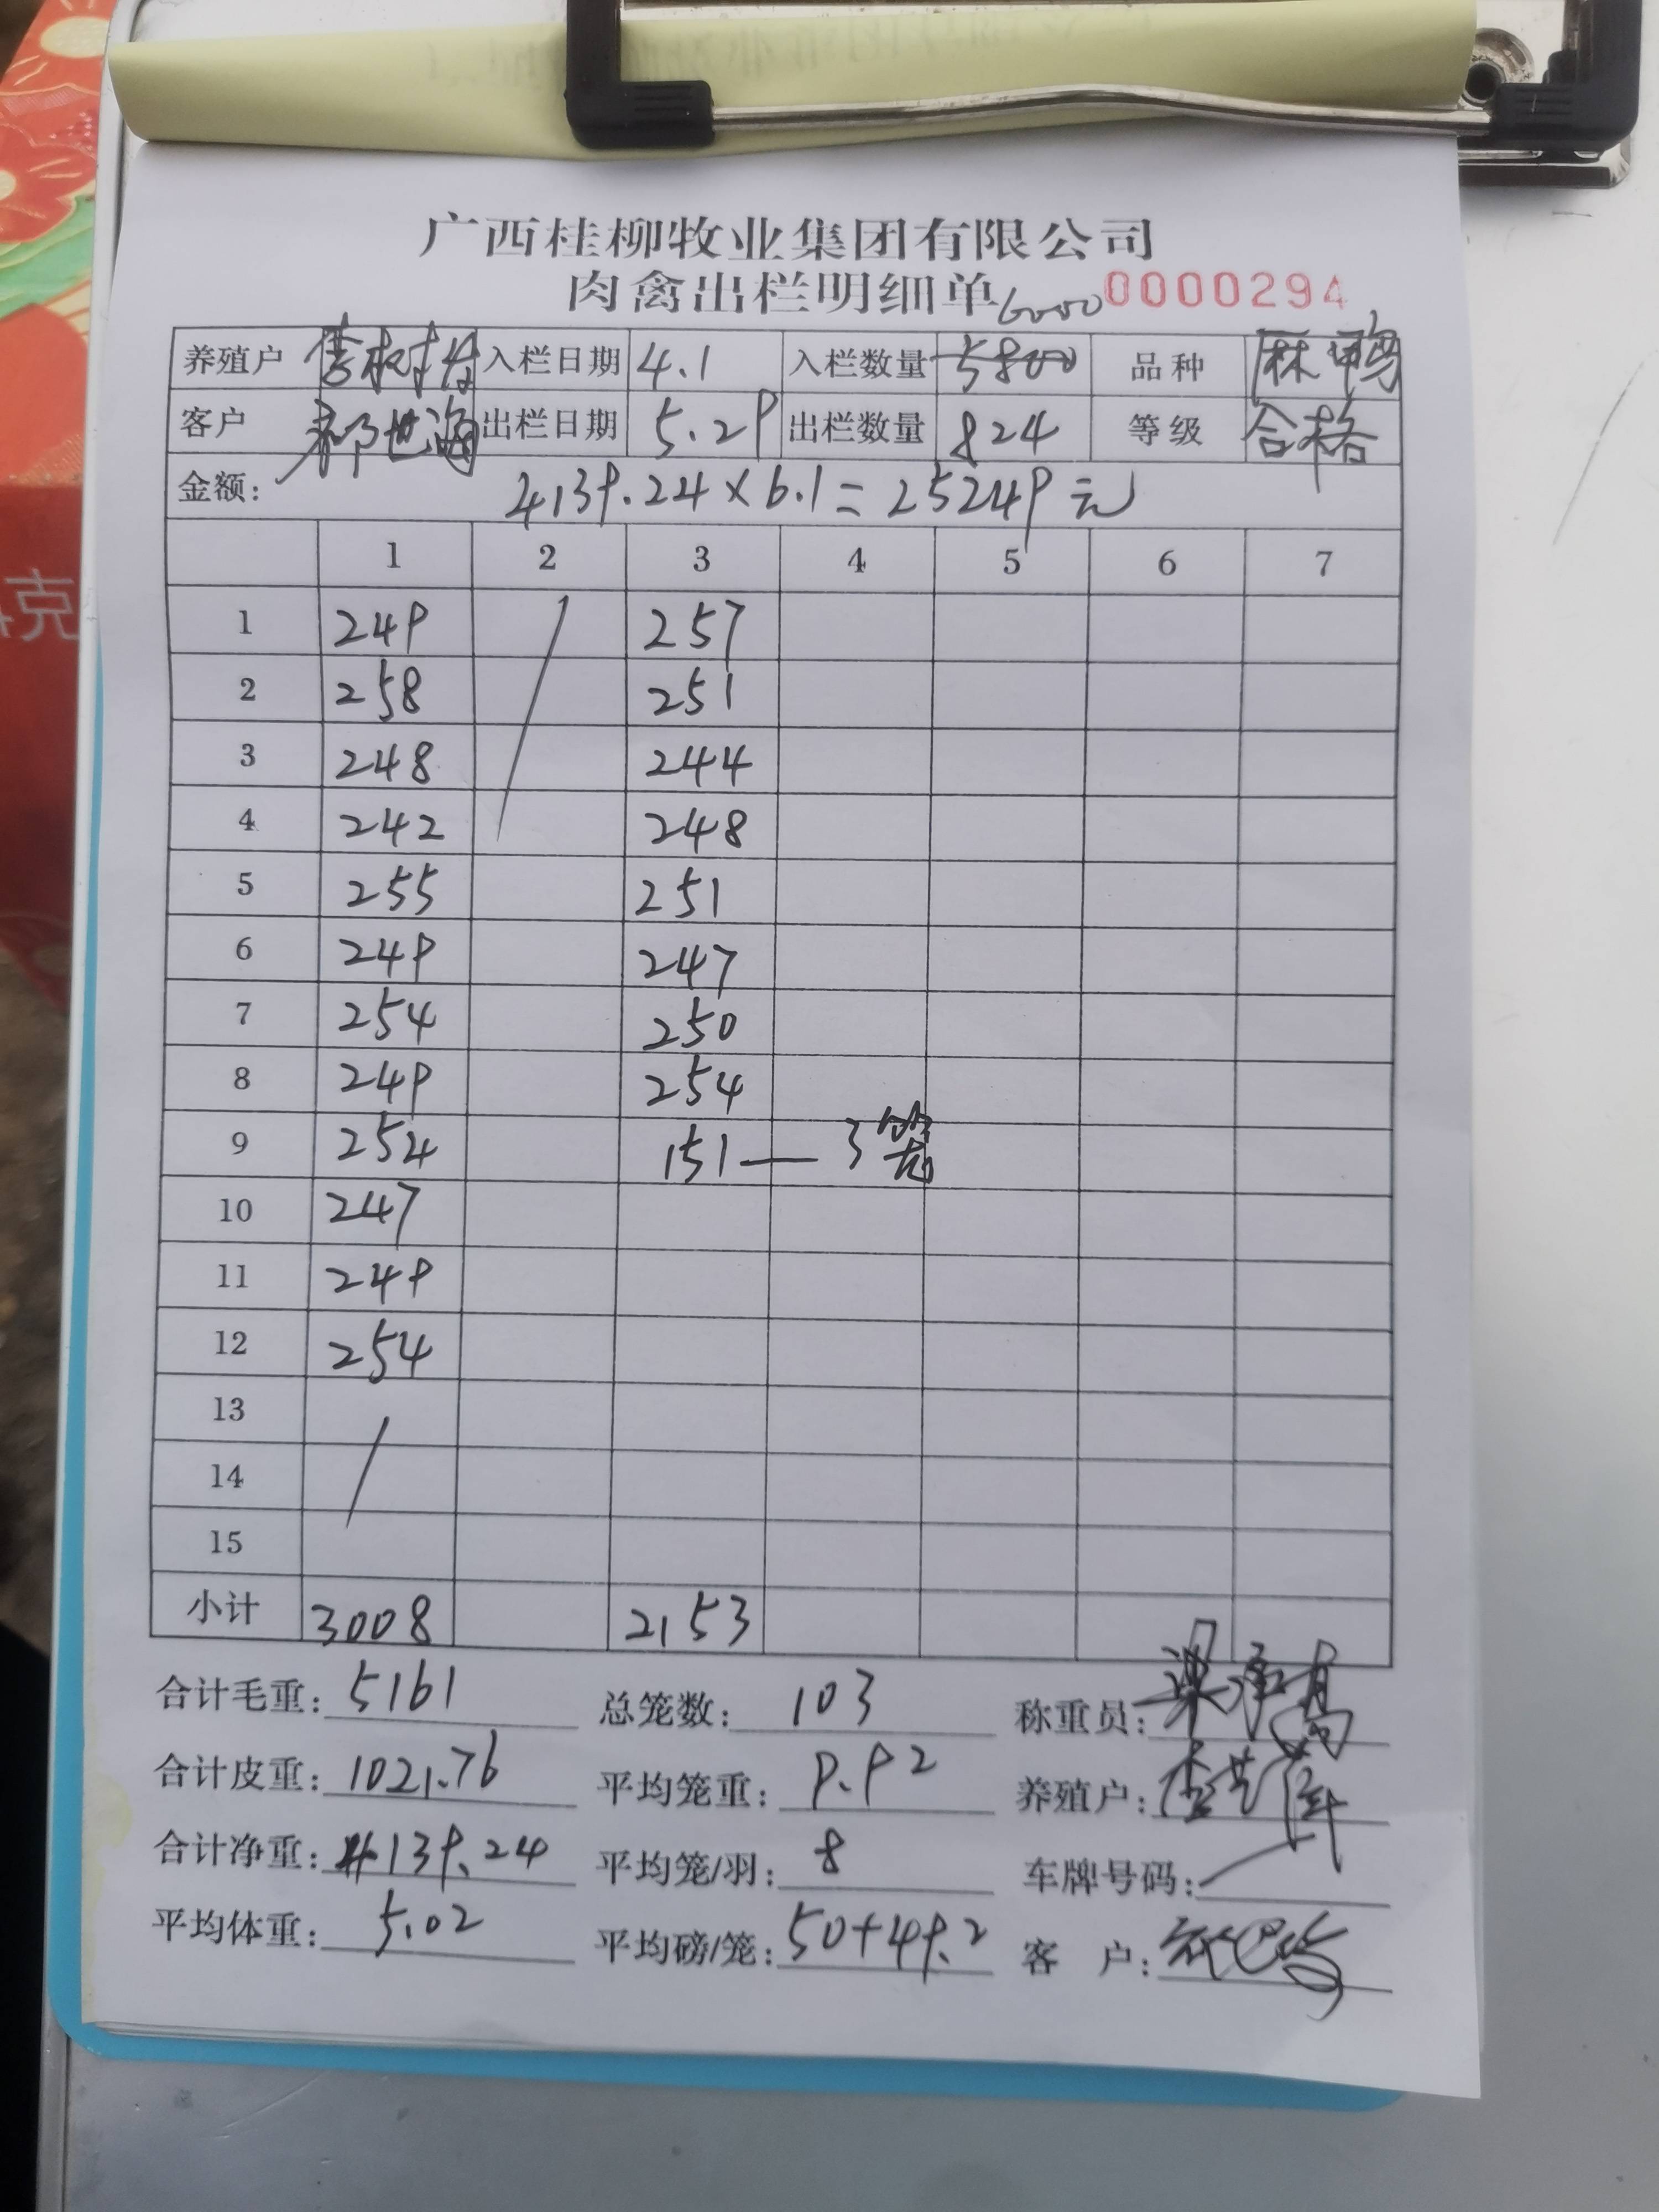 广西桂柳牧业集团有限公司
肉禽出栏明细单 6000 0000294
养殖户 李树 入栏日期 4.1 入栏数量 5800 品种 麻鸭
客户 世海 出栏日期 5.29 出栏数量 824 等级 合格
金额: 4139.24×6.1=25249元
1 2 3 4 5 6 7
1 249 257
2 258 251
3 248 244
4 242 248
5 255 251
6 249 247
7 254 250
8 249 254
9 254 151—3笼
10 247
11 249
12 254
13
14
15
小计 3008 2153
合计毛重: 5161 总笼数: 103 称重员: 梁
合计皮重: 1021.76 平均笼重: 9.92 养殖户: 李
合计净重: 4139.24 平均笼/羽: 8 车牌号码:
平均体重: 5.02 平均磅/笼: 50+49.2 客户:
克